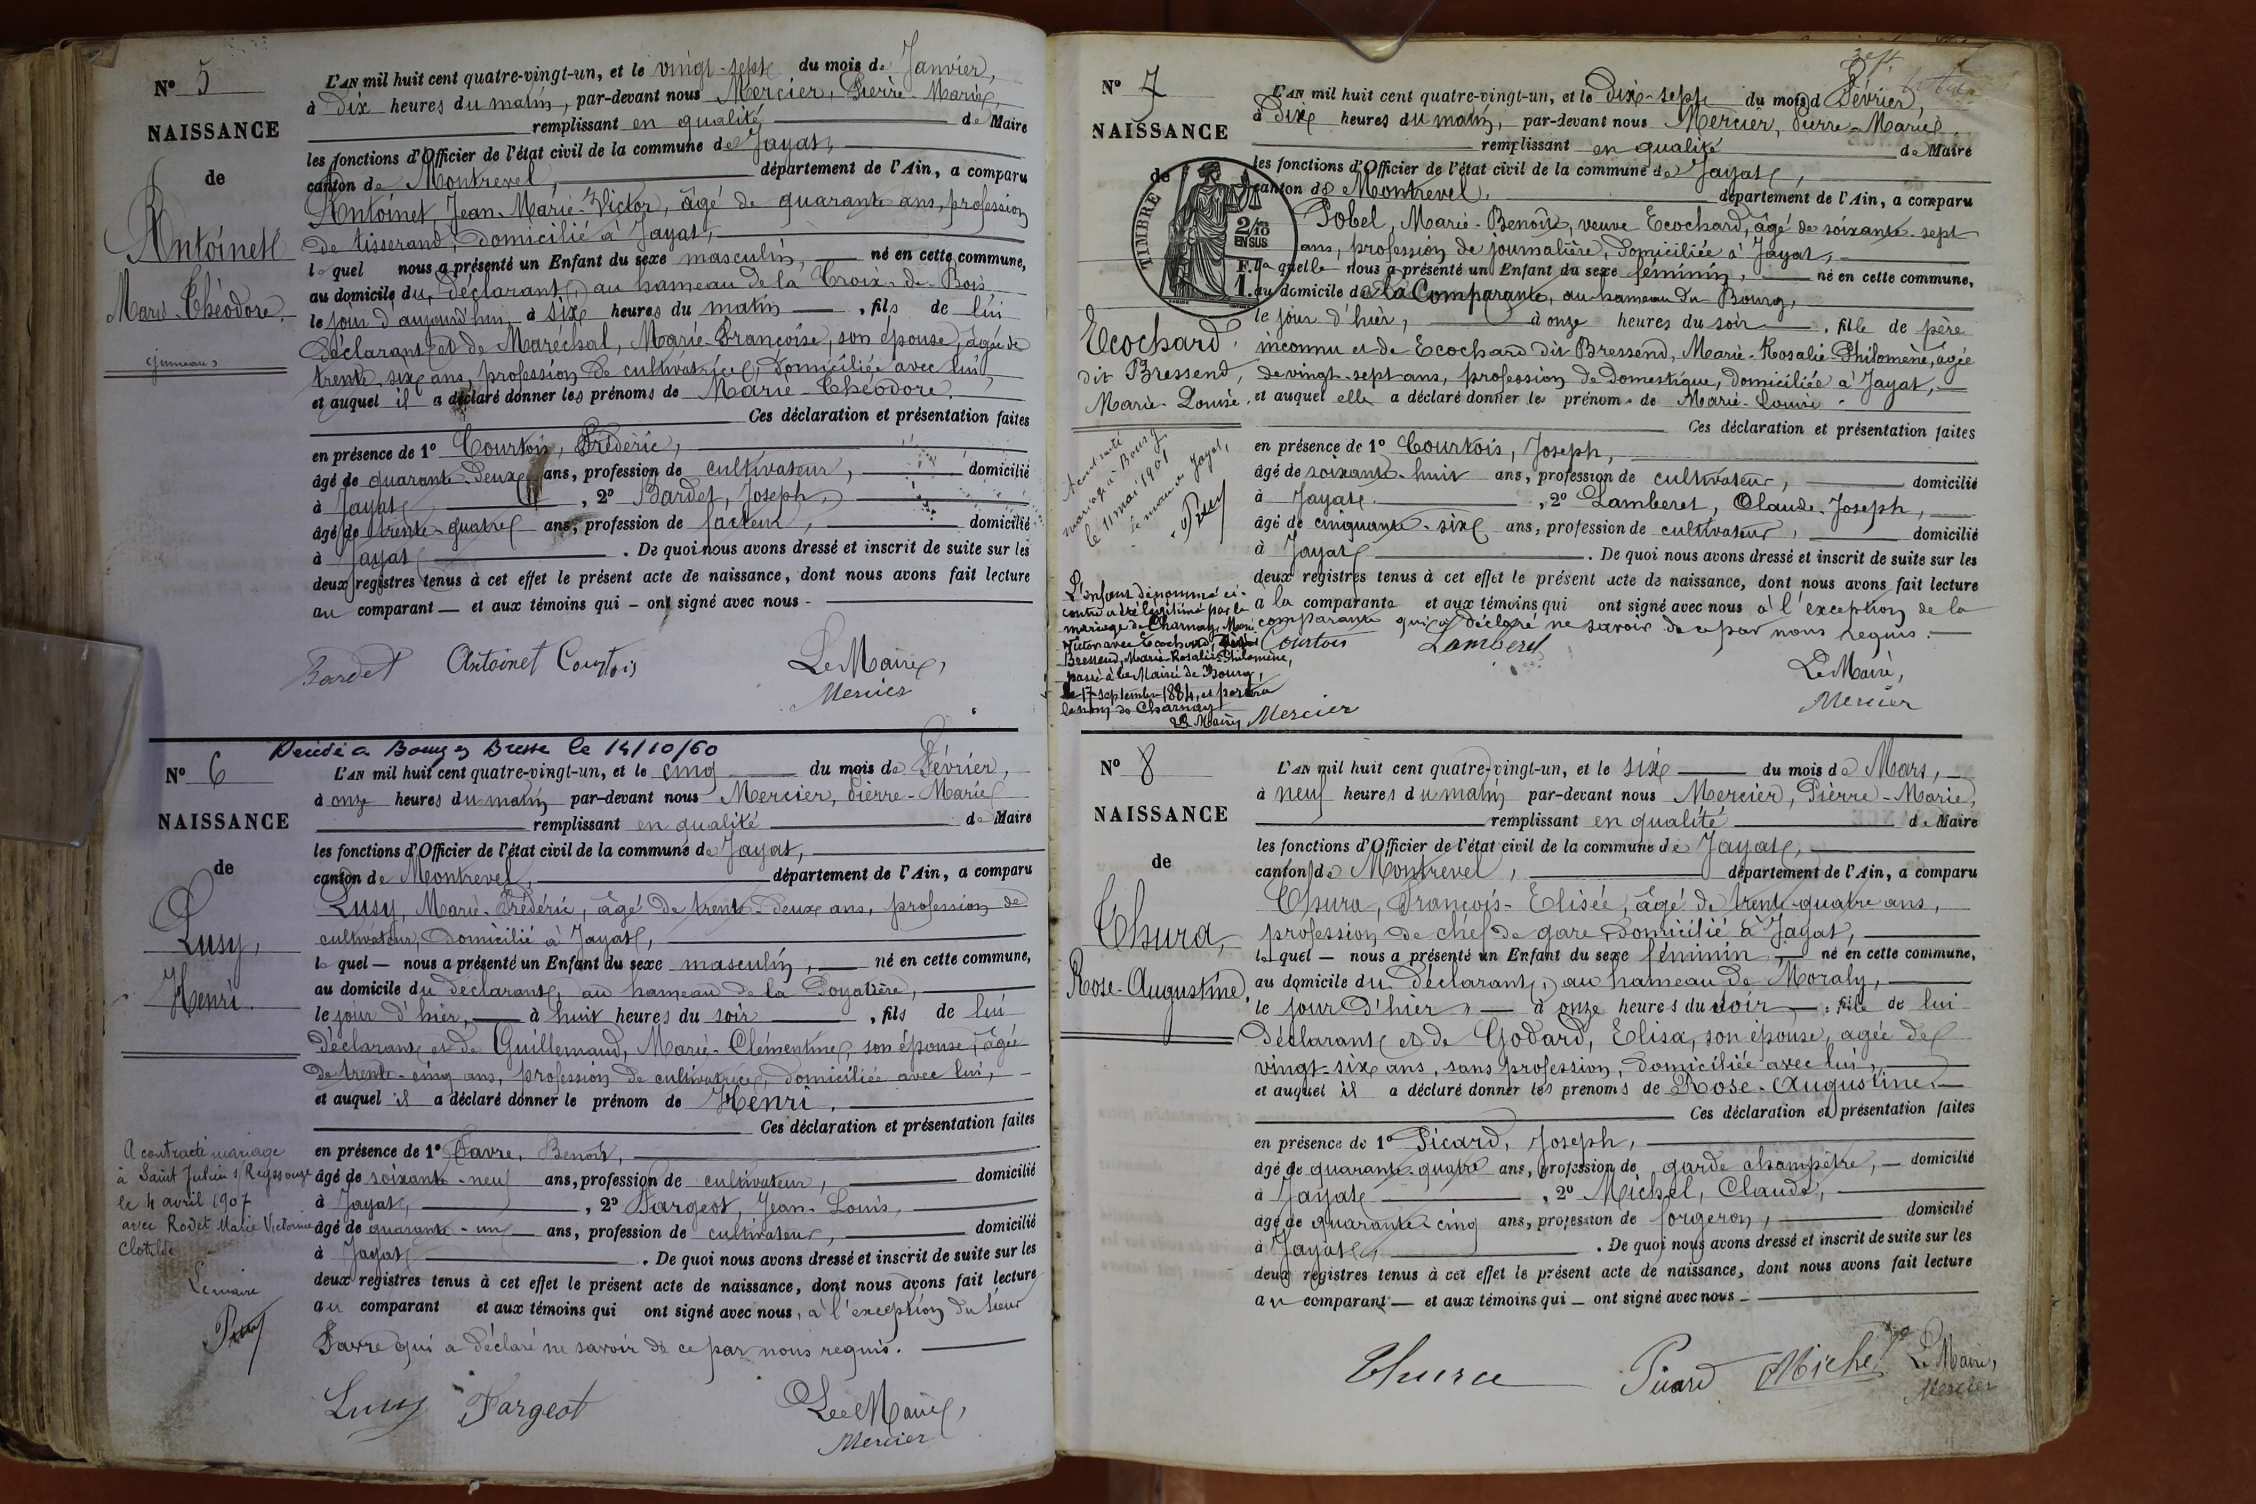 N° 5
NAISSANCE
de
Antoinet
Marie Théodore.
jumeau,
L'AN mil huit cent quatre-vingt-un, et le vingt-sept du mois de Janvier,
à dix heures du matin, par-devant nous Mercier, Pierre-Marie,
remplissant en qualité de Maire
les fonctions d'Officier de l'état civil de la commune de Jayat,
canton de Montrevel, département de l'Ain, a comparu
Antoinet, Jean-Marie-Victor, âgé de quarante ans, profession
de tisserand, domicilié à Jayat,
lequel nous a présenté un Enfant du sexe masculin, né en cette commune,
au domicile du déclarant, au hameau de la Croix-de-Bois
le jour d'aujourd'hui à six heures du matin, fils de lui
déclarant et de Maréchal, Marie-Françoise, son épouse, âgée de
trente-six ans, profession de cultivatrice, domiciliée avec lui,
et auquel il a déclaré donner les prénoms de Marie-Théodore.
Ces déclaration et présentation faites
en présence de 1° Courtois, Frédéric,
âgé de quarante-deux ans, profession de cultivateur, domicilié
à Jayat, 2° Bardet, Joseph,
âgé de trente-quatre ans, profession de facteur, domicilié
à Jayat. De quoi nous avons dressé et inscrit de suite sur les
deux registres tenus à cet effet le présent acte de naissance, dont nous avons fait lecture
au comparant et aux témoins qui ont signé avec nous.
Bardet Antoinet Courtois Le Maire,
Mercier
Décédé à Bourg en Bresse le 14/10/60
N° 6
NAISSANCE
de
Lusy,
Henri.
L'AN mil huit cent quatre-vingt-un, et le cinq du mois de Février,
à onze heures du matin par-devant nous Mercier, Pierre-Marie
remplissant en qualité de Maire
les fonctions d'Officier de l'état civil de la commune de Jayat,
canton de Montrevel, département de l'Ain, a comparu
Lusy, Marie-Frédéric, âgé de trente-deux ans, profession de
cultivateur, domicilié à Jayat,
lequel nous a présenté un Enfant du sexe masculin, né en cette commune,
au domicile du déclarant, au hameau de la Poyatière,
le jour d'hier, à huit heures du soir, fils de lui
déclarant et de Guillemaud, Marie-Clémentine, son épouse, âgée
de trente-cinq ans, profession de cultivatrice, domiciliée avec lui,
et auquel il a déclaré donner le prénom de Henri.
Ces déclaration et présentation faites
en présence de 1° Favre, Benoît,
âgé de soixante-neuf ans, profession de cultivateur, domicilié
à Jayat, 2° Pargeot, Jean-Louis,
âgé de quarante-un ans, profession de cultivateur, domicilié
à Jayat. De quoi nous avons dressé et inscrit de suite sur les
deux registres tenus à cet effet le présent acte de naissance, dont nous avons fait lecture
au comparant et aux témoins qui ont signé avec nous, à l'exception du sieur
Favre qui a déclaré ne savoir de ce par nous requis.
Lusy Pargeot Le Maire,
Mercier
A contracté mariage
à Saint Julien s/ Reyssouze
le 4 avril 1907
avec Rodet Marie Victorine
Clotilde
Le maire
N° 7
NAISSANCE
de
TIMBRE
2/10
EN SUS
Ecochard
dit Bressend,
Marie-Louise.
L'AN mil huit cent quatre-vingt-un, et le dix-sept du mois d Février,
à dix heures du matin, par-devant nous Mercier, Pierre-Marie
remplissant en qualité de Maire
les fonctions d'Officier de l'état civil de la commune de Jayat,
canton de Montrevel, département de l'Ain, a comparu
Pobel, Marie-Benoîte, veuve Ecochard, âgé de soixante-sept
ans, profession de journalière, domiciliée à Jayat,
laquelle nous a présenté un Enfant du sexe féminin, né en cette commune,
au domicile de la Comparante, au hameau du Bourg,
le jour d'hier, à onze heures du soir, fille de père
inconnu et de Ecochard dit Bressend, Marie-Rosalie-Philomène, âgée
de vingt-sept ans, profession de domestique, domiciliée à Jayat,
et auquel elle a déclaré donner les prénoms de Marie-Louise.
Ces déclaration et présentation faites
en présence de 1° Courtois, Joseph,
âgé de soixante-huit ans, profession de cultivateur, domicilié
à Jayat, 2° Lamberet, Claude-Joseph,
âgé de cinquante-six ans, profession de cultivateur, domicilié
à Jayat. De quoi nous avons dressé et inscrit de suite sur les
deux registres tenus à cet effet le présent acte de naissance, dont nous avons fait lecture
a la comparante et aux témoins qui ont signé avec nous à l'exception de la
comparante qui a déclaré ne savoir de ce par nous requis.
Courtois Lamberet
Le Maire,
Mercier
A contracté
mariage à Bourg
le 11 mai 1901
Le maire Jayat,
L'enfant dénommé ci-
contre a été légitimé par le
mariage de Charnay, Marie
Victor avec Ecochard, dit
Bressend, Marie-Rosalie-Philomène,
passé à la Mairie de Bourg,
le 17 septembre 1884, et portera
le nom de Charnay
Le Maire, Mercier
N° 8
NAISSANCE
de
Thura,
Rose-Augustine,
L'AN mil huit cent quatre-vingt-un, et le six du mois de Mars,
à neuf heures du matin par-devant nous Mercier, Pierre-Marie,
remplissant en qualité de Maire
les fonctions d'Officier de l'état civil de la commune de Jayat,
canton de Montrevel, département de l'Ain, a comparu
Thura, François-Elisée, âgé de trente-quatre ans,
profession de chef de gare, domicilié à Jayat,
lequel nous a présenté un Enfant du sexe féminin, né en cette commune,
au domicile du déclarant, au hameau de Moraly,
le jour d'hier, à onze heures du soir, fille de lui
déclarant et de Godard, Elisa, son épouse, âgée de
vingt-six ans, sans profession, domiciliée avec lui,
et auquel il a déclaré donner les prénoms de Rose-Augustine.
Ces déclaration et présentation faites
en présence de 1° Picard, Joseph,
âgé de quarante-quatre ans, profession de garde champêtre, domicilié
à Jayat, 2° Michel, Claude,
âgé de quarante-cinq ans, profession de forgeron, domicilié
à Jayat, . De quoi nous avons dressé et inscrit de suite sur les
deux registres tenus à cet effet le présent acte de naissance, dont nous avons fait lecture
au comparant et aux témoins qui ont signé avec nous
Thura Picard Michel Le Maire,
Mercier